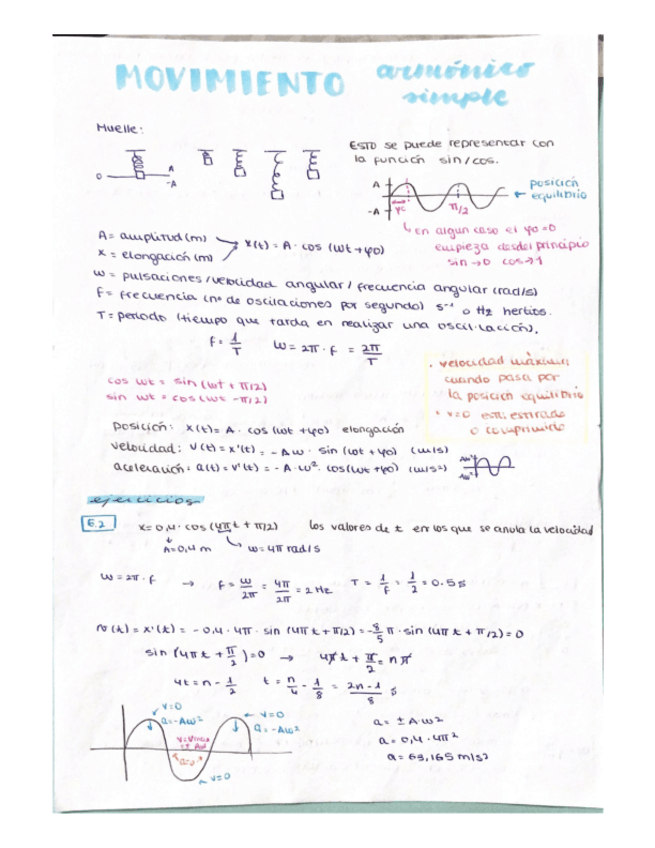 MOVIMIENTO armónico simple
Muelle:
ESTO se puede representar con
la función sin/cos.
0
A
-A
A
-A
φ0
π/2
← posición
equilibrio
en algún caso el φ0=0
empieza desde principio
sin→0 cos→1
A= amplitud (m)
x = elongación (m)
x(t) = A · cos (ωt + φ0)
ω = pulsaciones/velocidad angular/frecuencia angular (rad/s)
f = frecuencia (nº de oscilaciones por segundo) s⁻¹ o Hz hertios.
T= periodo (tiempo que tarda en realizar una oscilación).
f = 1/T ω = 2π · f = 2π/T
cos ωt = sin (ωt + π/2)
sin ωt = cos (ωt - π/2)
· velocidad máxima
cuando pasa por
la posición equilibrio
· v=0 est. estirado
o comprimido
posición: x(t) = A · cos (ωt + φ0) elongación
velocidad: v(t) = x'(t) = - Aω · sin (ωt + φ0) (m/s)
aceleración: a(t) = v'(t) = - A · ω² · cos(ωt + φ0) (m/s²)
Aω²
-Aω²
ejercicios
E.2 x = 0,4 · cos (4πt + π/2) los valores de t en los que se anula la velocidad
A=0,4 m ω=4π rad/s
ω = 2π · f → f = ω/2π = 4π/2π = 2 Hz T = 1/f = 1/2 = 0.5 s
v(t) = x'(t) = - 0,4 · 4π · sin (4πt + π/2) = -8/5 π · sin (4πt + π/2) = 0
sin (4πt + π/2) = 0 → 4πt + π/2 = nπ
4t = n - 1/2 t = n/4 - 1/8 = 2n-1/8 s
v=0
a=-Aω²
v=vmax
= ± Aω
a=0
← v=0
a = -Aω²
v=0
a = ± A·ω²
a = 0,4 · 4π²
a = 63,165 m/s²